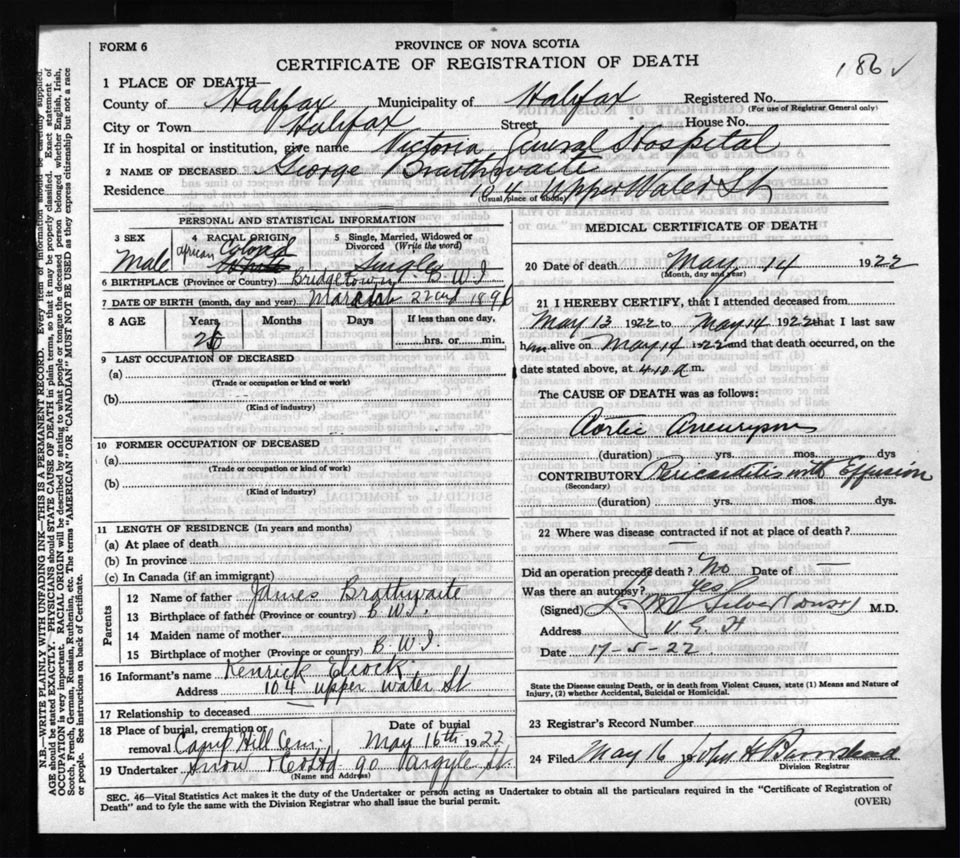 FORM 6
PROVINCE OF NOVA SCOTIA
CERTIFICATE OF REGISTRATION OF DEATH
186 ✓
1 PLACE OF DEATH—
County of Halifax Municipality of Halifax Registered No.
(For use of Registrar General only)
City or Town Halifax Street House No.
If in hospital or institution, give name Victoria General Hospital
2 NAME OF DECEASED George Braithwaite
Residence 104 Upper Water St
(Usual place of abode)
PERSONAL AND STATISTICAL INFORMATION
3 SEX 4 RACIAL ORIGIN 5 Single, Married, Widowed or Divorced (Write the word)
Male African Colored White Single
6 BIRTHPLACE (Province or Country) Bridgetown B.W.I
7 DATE OF BIRTH (month, day and year) March 22nd 1896
8 AGE Years Months Days If less than one day,
26 hrs. or min.
9 LAST OCCUPATION OF DECEASED
(a)
(Trade or occupation or kind or work)
(b)
(Kind of industry)
10 FORMER OCCUPATION OF DECEASED
(a)
(Trade or occupation or kind of work)
(b)
(Kind of industry)
11 LENGTH OF RESIDENCE (In years and months)
(a) At place of death
(b) In province
(c) In Canada (if an immigrant)
Parents
12 Name of father James Brathwaite
13 Birthplace of father (Province or country) B.W.I.
14 Maiden name of mother
15 Birthplace of mother (Province or country) B.W.I.
16 Informant's name Kenrick
Address 104 upper water St
17 Relationship to deceased
18 Place of burial, cremation or removal Camp Hill Cem. Date of burial May 16th 1922
19 Undertaker Snow & Co Ltd 90 Argyle St.
(Name and Address)
MEDICAL CERTIFICATE OF DEATH
20 Date of death May 14 1922
(Month, day and year)
21 I HEREBY CERTIFY, that I attended deceased from
May 13 1922 to May 14 1922 that I last saw
him alive on May 14 1922 and that death occurred, on the
date stated above, at 4.10 a m.
The CAUSE OF DEATH was as follows:
Aortic Aneurysm
(duration) yrs. mos. dys
CONTRIBUTORY Pericarditis with Effusion
(Secondary)
(duration) yrs. mos. dys.
22 Where was disease contracted if not at place of death?
—
Did an operation precede death? No Date of —
Was there an autopsy? Yes
(Signed) Silver M.D.
Address V G H
Date 17-5-22
State the Disease causing Death, or in death from Violent Causes, state (1) Means and Nature of
Injury, (2) whether Accidental, Suicidal or Homicidal.
23 Registrar's Record Number
24 Filed May 16 John H
Division Registrar
SEC. 46—Vital Statistics Act makes it the duty of the Undertaker or person acting as Undertaker to obtain all the particulars required in the "Certificate of Registration of
Death" and to fyle the same with the Division Registrar who shall issue the burial permit.
(OVER)
N.B.—WRITE PLAINLY WITH UNFADING INK—THIS IS A PERMANENT RECORD. Every item of information should be carefully supplied.
AGE should be stated EXACTLY. PHYSICIANS should STATE CAUSE OF DEATH in plain terms, so that it may be properly classified. Exact statement of
OCCUPATION is very important. RACIAL ORIGIN will be described by stating to what people or tongue the deceased person belonged whether English, Irish,
Scotch, French, German, Russian, Ruthenian, etc. The terms "AMERICAN" OR "CANADIAN" MUST NOT BE USED as they express citizenship but not a race
or people. See instructions on back of Certificate.